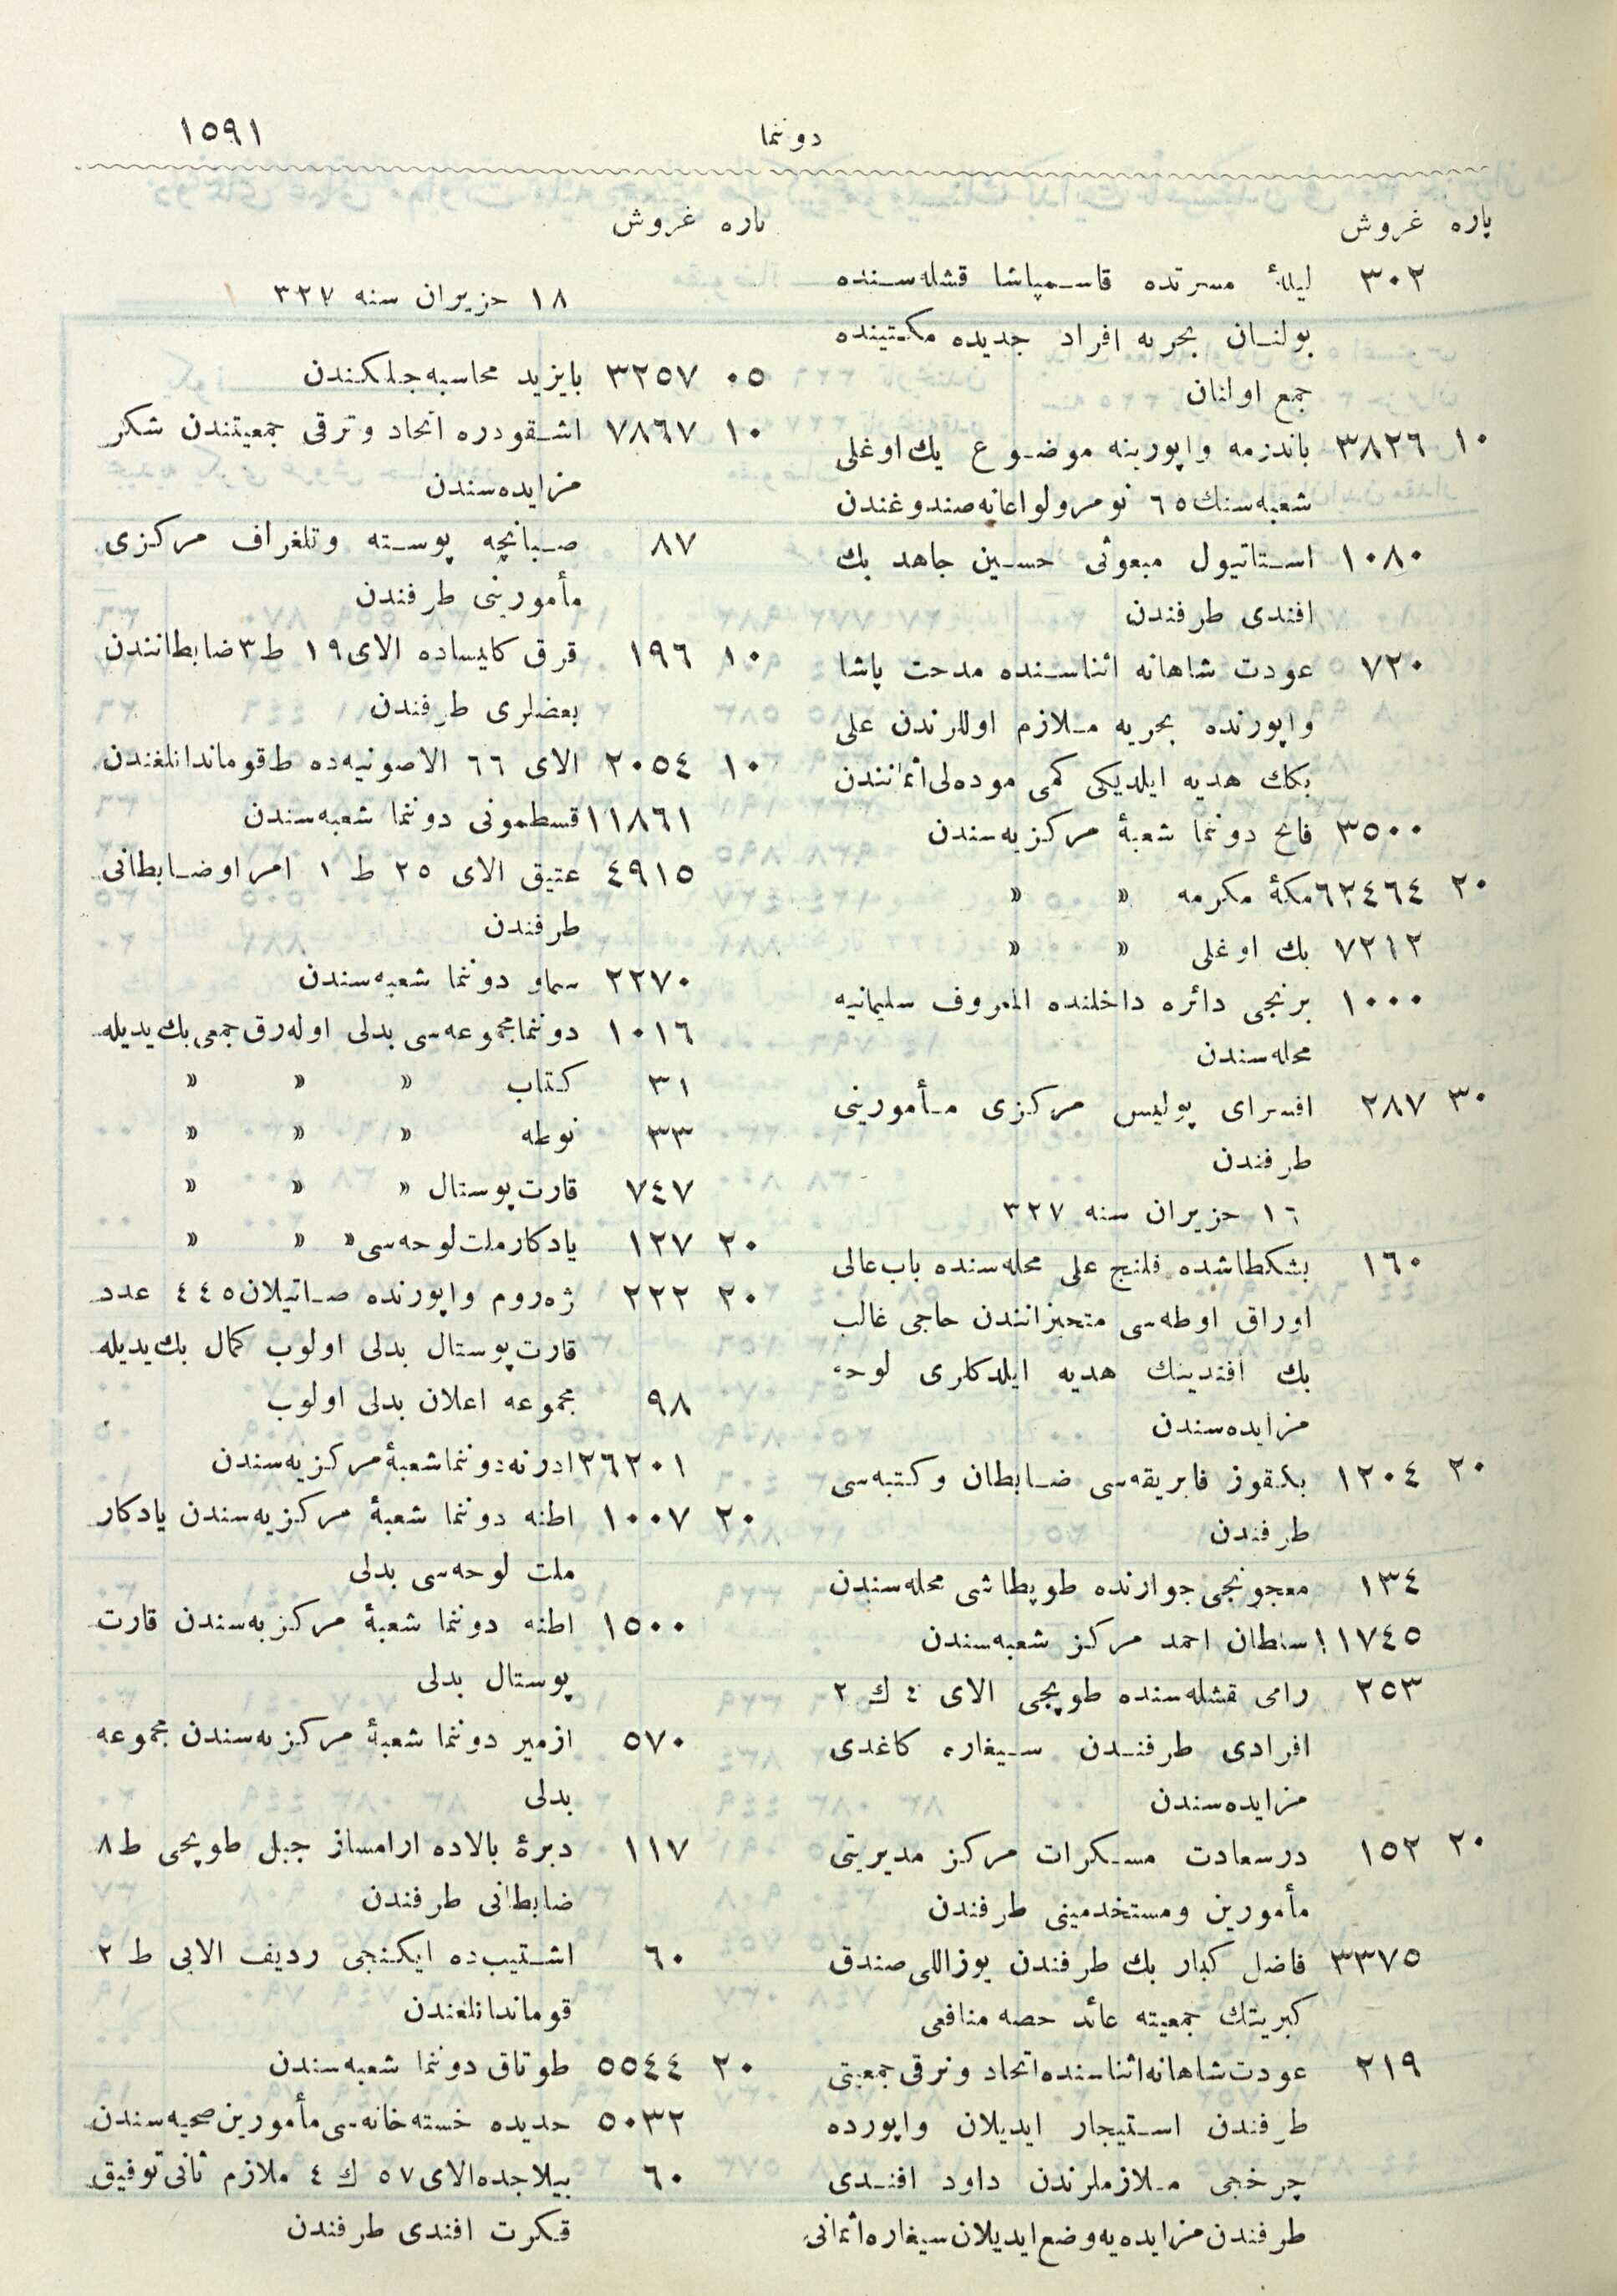 دوننما
١٥٩١
پاره غروش
٣٠٢ ليلۀ مسرتده قاسمپاشا قشله‌سنده
بولنان بحريه افراد جديده مكتبنده
جمع اولنان
١٠ ٣٨٢٦ باندرمه واپورينه موضوع بك اوغلى
شعبه‌سنك ٦٥ نومرولو اعانه صندوغندن
١٠٨٠ استانبول مبعوثى حسين جاهد بك
افندى طرفندن
٧٢٠ عودت شاهانه اثناسنده مدحت پاشا
واپورنده بحريه ملازم اوللرندن على
بكك هديه ايلديكى كمى موده‌لى اثماننندن
٣٥٠٠ فاتح دوننما شعبۀ مركزيه‌سندن
٢٠ ٦٢٤٦٤ مكۀ مكرمه » »
٧٢١٢ بك اوغلى » »
١٠٠٠ برنجى دائره داخلنده المعروف سليمانيه
محله‌سندن
٣٠ ٢٨٧ اقسراى پوليس مركزى مأمورينى
طرفندن
١٦ حزيران سنه ٣٢٧
١٦٠ بشكطاشده قلنج على محله‌سنده باب عالى
اوراق اوطه‌سى متحيزانندن حاجى غالب
بك افندينك هديه ايلدكلرى لوحه
مزايده‌سندن
٢٠ ١٢٠٤ بيقوز فابريقه‌سى ضابطان وكتبه‌سى
طرفندن
١٣٤ معجونجى جوارنده طوپطاشى محله‌سندن
١١٧٤٥ سلطان احمد مركز شعبه‌سندن
٢٥٣ رامى قشله‌سنده طوپجى الاى ٤ ك ٢
افرادى طرفندن سيغاره كاغدى
مزايده‌سندن
٢٠ ١٥٢ درسعادت مسكرات مركز مديريتى
مأمورين ومستخدمينى طرفندن
٣٣٧٥ فاضل كبار بك طرفندن يوزاللى صندق
كبريتك جمعيته عائد حصه منافعى
٢١٩ عودت شاهانه اثناسنده اتحاد وترقى جمعيتى
طرفندن استيجار ايديلان واپورده
چرخجى ملازملرندن داود افندى
طرفندن مزايده‌يه وضع ايديلان سيغاره اثمانى
پاره غروش
١٨ حزيران سنه ٣٢٧
٠٥ ٣٢٥٧ بايزيد محاسبه‌جيلكندن
١٠ ٧٨٦٧ اشقودره اتحاد وترقى جمعيتندن شكر
مزايده‌سندن
٨٧ صبانجه پوسته وتلغراف مركزى
مأمورينى طرفندن
١٠ ١٩٦ قرق كليساده الاى ١٩ ط ٣ ضابطانندن
بعضلرى طرفندن
١٠ ٢٠٥٤ الاى ٦٦ الاصونيه‌ده ط قوماندانلغندن
١١٨٦١ قسطمونى دوننما شعبه‌سندن
٤٩١٥ عتيق الاى ٢٥ ط ١ امرا وضابطانى
طرفندن
٢٢٧٠ سماو دوننما شعبه‌سندن
١٠١٦ دوننما مجموعه‌سى بدلى اوله‌رق جمعى بك يديله
٣١ كتاب » » »
٣٣ نوطه » » »
٧٤٧ قارت پوستال » » »
٢٠ ١٢٧ يادكار ملت لوحه‌سى » » »
٢٠ ٢٢٢ ژه‌روم واپورنده صاتيلان ٤٤٥ عدد
قارت پوستال بدلى اولوب كمال بك يديله
٩٨ مجموعه اعلان بدلى اولوب
٢٦٢٠١ ادرنه دوننما شعبۀ مركزيه‌سندن
٢٠ ١٠٠٧ اطنه دوننما شعبۀ مركزيه‌سندن يادكار
ملت لوحه‌سى بدلى
١٥٠٠ اطنه دوننما شعبۀ مركزيه‌سندن قارت
پوستال بدلى
٥٧٠ ازمير دوننما شعبۀ مركزيه‌سندن مجموعه
بدلى
١١٧ دبرۀ بالاده ارامساز جبل طوپجى ط ٨
ضابطانى طرفندن
٦٠ اشتيب‌ده ايكنجى رديف الايى ط ٢
قوماندانلغندن
٢٠ ٥٥٤٤ طوتاق دوننما شعبه‌سندن
٥٠٣٢ حديده خسته‌خانه‌سى مأمورين صحيه‌سندن
٦٠ بيلاجده الاى ٥٧ ك ٤ ملازم ثانى توفيق
فكرت افندى طرفندن